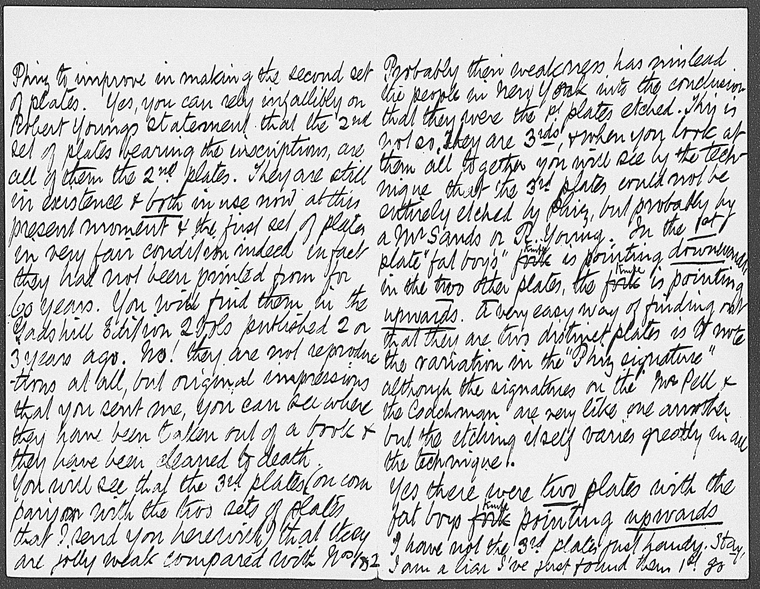 Phiz to improve in making the second set
of plates. Yes, you can rely infallibly on
Robert Youngs statement that the 2nd
set of plates bearing the inscriptions, are
all of them the 2nd plates. They are still
in existence & both in use now at this
present moment & the first set of plates
in very fair condition indeed in fact
they had not been printed from for
60 years. You will find them in the
Gadshill Edition 2 Vols published 2 or
3 years ago. No! they are not reproduc
-tions at all, but original impressions
that you sent me, you can see where
they have been taken out of a book &
they have been cleaned to death.
You will see that the 3rd plates (on com
parison with the two sets of plates
that I send you herewith) that they
are jolly weak compared with Nos 1 & 2
Probably their weakness has mislead
the people in New York into the conclusion
that they were the 1st plates etched. This is
not so, they are 3rds, & when you look at
them all together you will see by the tech-
nique that the 3rd plates could not be
entirely etched by Phiz, but probably by
a Mr Sands or R. Young. In the 1st
plate "fat boys" fork Knife is pointing downwards
in the two other plates, the fork Knife is pointing
upwards. A very easy way of finding out
that they are two distinct plates is to note
the variation in the "Phiz signature"
although the signatures on the Mr Pell &
the Coachman are very like one another
but the etching itself varies greatly in all
the technique.
Yes there were two plates with the
fat boys fork Knife pointing upwards
I have not the 3rd plates just handy. Stay,
I am a liar I've just found them 1st go